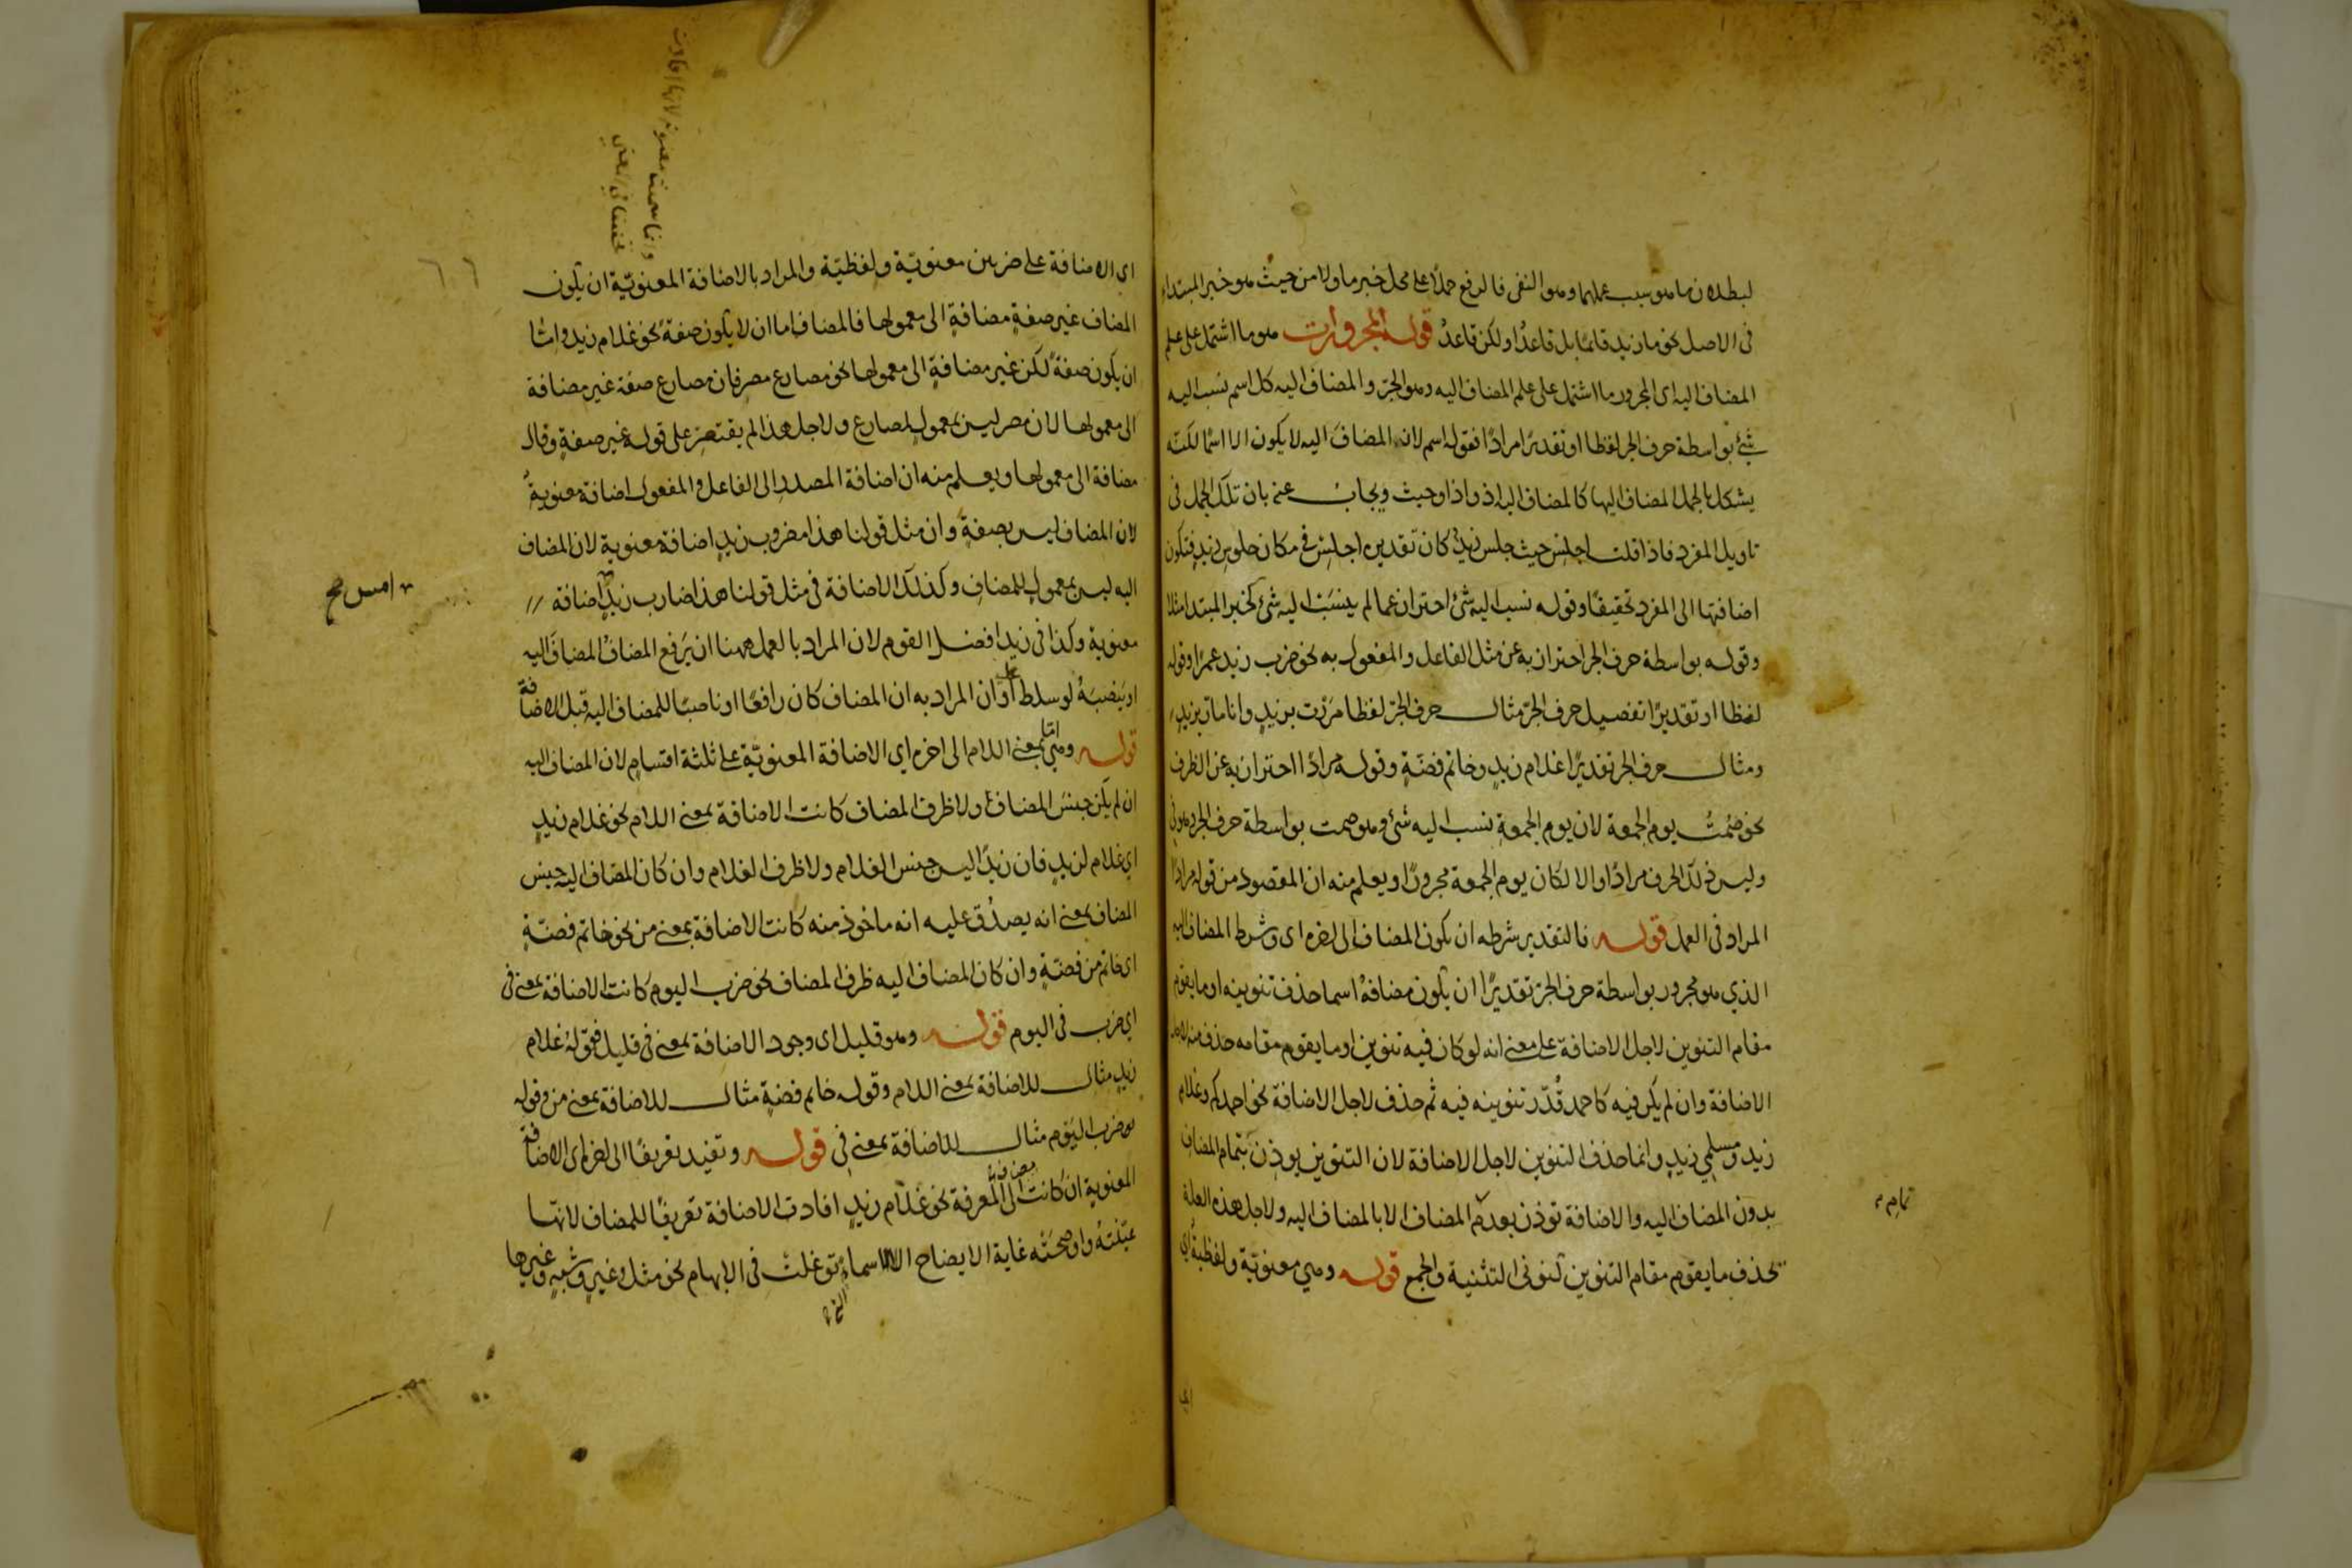 لبطلان ما هو سبب عملهما وهو النفى فالرفع حملا على محل خبر ما ولا من حيث هو خبر المبتداء
فى الاصل نحو ما زيد قائمًا بل قاعدٌ او لكن قاعدٌ قوله المجرورات هو ما اشتمل على علم
المضاف اليه اى المجرور ما اشتمل على علم المضاف اليه وهو الجرّ والمضاف اليه كل اسم نسب اليه
شئ بواسطة حرف الجر لفظا او تقديرًا مرادًا فقوله اسم لان المضاف اليه لا يكون الا اسمًا لكنّه
يشكل بالجمل المضاف اليها كالمضاف اليه اذ واذا وحيث ويجاب عنه بان تلك الجمل فى
تاويل المفرد فاذا قلت اجلس حيث جلس زيدٌ كان تقديره اجلس فى مكان جلوس زيدٍ فتكون
اضافتها الى المفرد تحقيقًا وقوله نسب اليه شئ احتراز عما لم ينسب اليه شئ كخبر المبتدا مثلا
وقوله بواسطة حرف الجر احتراز به عن مثل الفاعل والمفعول به نحو ضرب زيد عمرًا وقوله
لفظا او تقديرًا تفصيل حرف الجرّ مثال حرف الجرّ لفظا مررت بزيدٍ وانا مارّ بزيدٍ
ومثال حرف الجر تقديرًا غلام زيدٍ وخاتم فضّةٍ وقوله مرادًا احتراز به عن الظرف
نحو صُمتُ يوم الجمعة لان يوم الجمعة نسب اليه شئ وهو صمت بواسطة حرف الجر وهو فى
وليس ذلك الحرف مرادًا والا لكان يوم الجمعة مجرورًا ويعلم منه ان المقصود من قوله مرادًا
المراد فى العمل قوله فالتقدير شرطه ان يكون المضاف الى اخره اى وشرط المضاف اليه
الذي هو مجرور بواسطة حرف الجرّ تقديرًا ان يكون مضافهُ اسما حذف تنوينه او ما يقوم
مقام التنوين لاجل الاضافة على معنى انه لو كان فيه تنوين او ما يقوم مقامه حذف منه لاجل
الاضافة وان لم يكن فيه كاحمد قُدّر تنوينه فيه ثم حذف لاجل الاضافة نحو احمدكم وغلام
زيد ومسلمي زيدٍ وانما حذف التنوين لاجل الاضافة لان التنوين يوذن بتمام المضاف
بدون المضاف اليه والاضافة توذن بعدم المضاف الا بالمضاف اليه ولاجل هذه العلة
تمام
تحذف ما يقوم مقام التنوين كنونى التثنية والجمع قوله وهي معنويّة ولفظية اى
اى
اى الاضافة على ضربين معنويّة ولفظيّة والمراد بالاضافة المعنويّة ان يكون
المضاف غير صفةٍ مضافةٍ الى معمولها فالمضاف اما ان لا يكون صفة نحو غلام زيد وامّا
ان يكون صفةً لكن غير مضافةٍ الى معمولها نحو مصارع مصر فان مصارع صفة غير مضافة
الى معمولها لان مصر ليس بمعمول لمصارع ولاجل هذا لم يقتصر على قوله غير صفةٍ وقال
مضافة الى معمولها ويعلم منه ان اضافة المصدر الى الفاعل والمفعول اضافة معنويةٌ
لان المضاف ليس بصفةٍ وان مثل قولنا هذا مضروب زيدٍ اضافة معنوية لان المضاف
اليه ليس بمعمولٍ للمضاف وكذلك الاضافة فى مثل قولنا هذا ضارب زيدٍ اضافة
امس صح
معنوية وكذا فى زيد افضل القوم لان المراد بالعمل ههنا ان يَرفع المضافُ المضافَ اليه
او ينصبَهُ لو سلط عليه او ان المراد به ان المضاف كان رافعًا او ناصبًا للمضاف اليه قبل الاضافة
قوله وهى امّا بمعنى اللام الى اخره اى الاضافة المعنويّة على ثلثة اقسام لان المضاف اليه
ان لم يكن جنسَ المضاف ولا ظرف المضاف كانت الاضافة بمعنى اللام نحو غلام زيدٍ
اى غلام لزيدٍ فان زيدًا ليس جنس الغلام ولا ظرف الغلام وان كان المضاف اليه جنس
المضاف بمعنى انه يصدُق عليه انه ماخوذ منه كانت الاضافة بمعنى من نحو خاتم فضّةٍ
اى خاتم من فضّةٍ وان كان المضاف اليه ظرف المضاف نحو ضرب اليوم كانت الاضافة بمعنى فى
اى ضرب فى اليوم قوله وهو قليل اى وجود الاضافة بمعنى فى قليل فقوله غلام
زيدٍ مثال للاضافة بمعنى اللام وقوله خاتم فضةٍ مثال للاضافة بمعنى من وقوله
ضرب اليَوم مثال للاضافة بمعنى فى قوله وتفيد تعريفًا الى اخره اى الاضافة
المعنوية ان كانت الى المعرفة نحو غلام زيدٍ افادت الاضافة تعريفًا للمضاف لانها
عيّنتهُ واوضحَتْه غاية الايضاح الا الاسماء توغلت فى الابهام نحو مثل وغيرٍ وشبهٍ وغيرها
التى